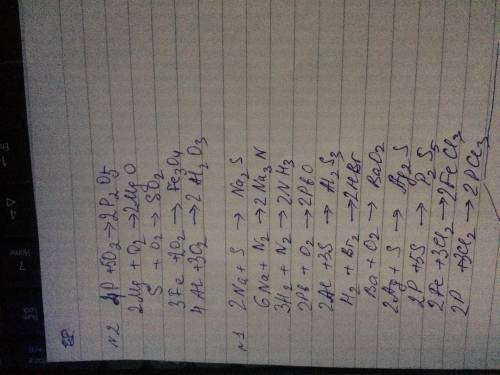 №2 4P + 5O2 → 2P2O5
2Mg + O2 → 2MgO
S + O2 → SO2
3Fe + 2O2 → Fe3O4
4Al + 3O2 → 2Al2O3
№1 2Na + S → Na2S
6Na + N2 → 2Na3N
3H2 + N2 → 2NH3
2Pb + O2 → 2PbO
2Al + 3S → Al2S3
H2 + Br2 → 2HBr
Ba + O2 → BaO2
2Ag + S → Ag2S
2P + 5S → P2S5
2Fe + 3Cl2 → 2FeCl3
2P + 3Cl2 → 2PCl3
Home
7